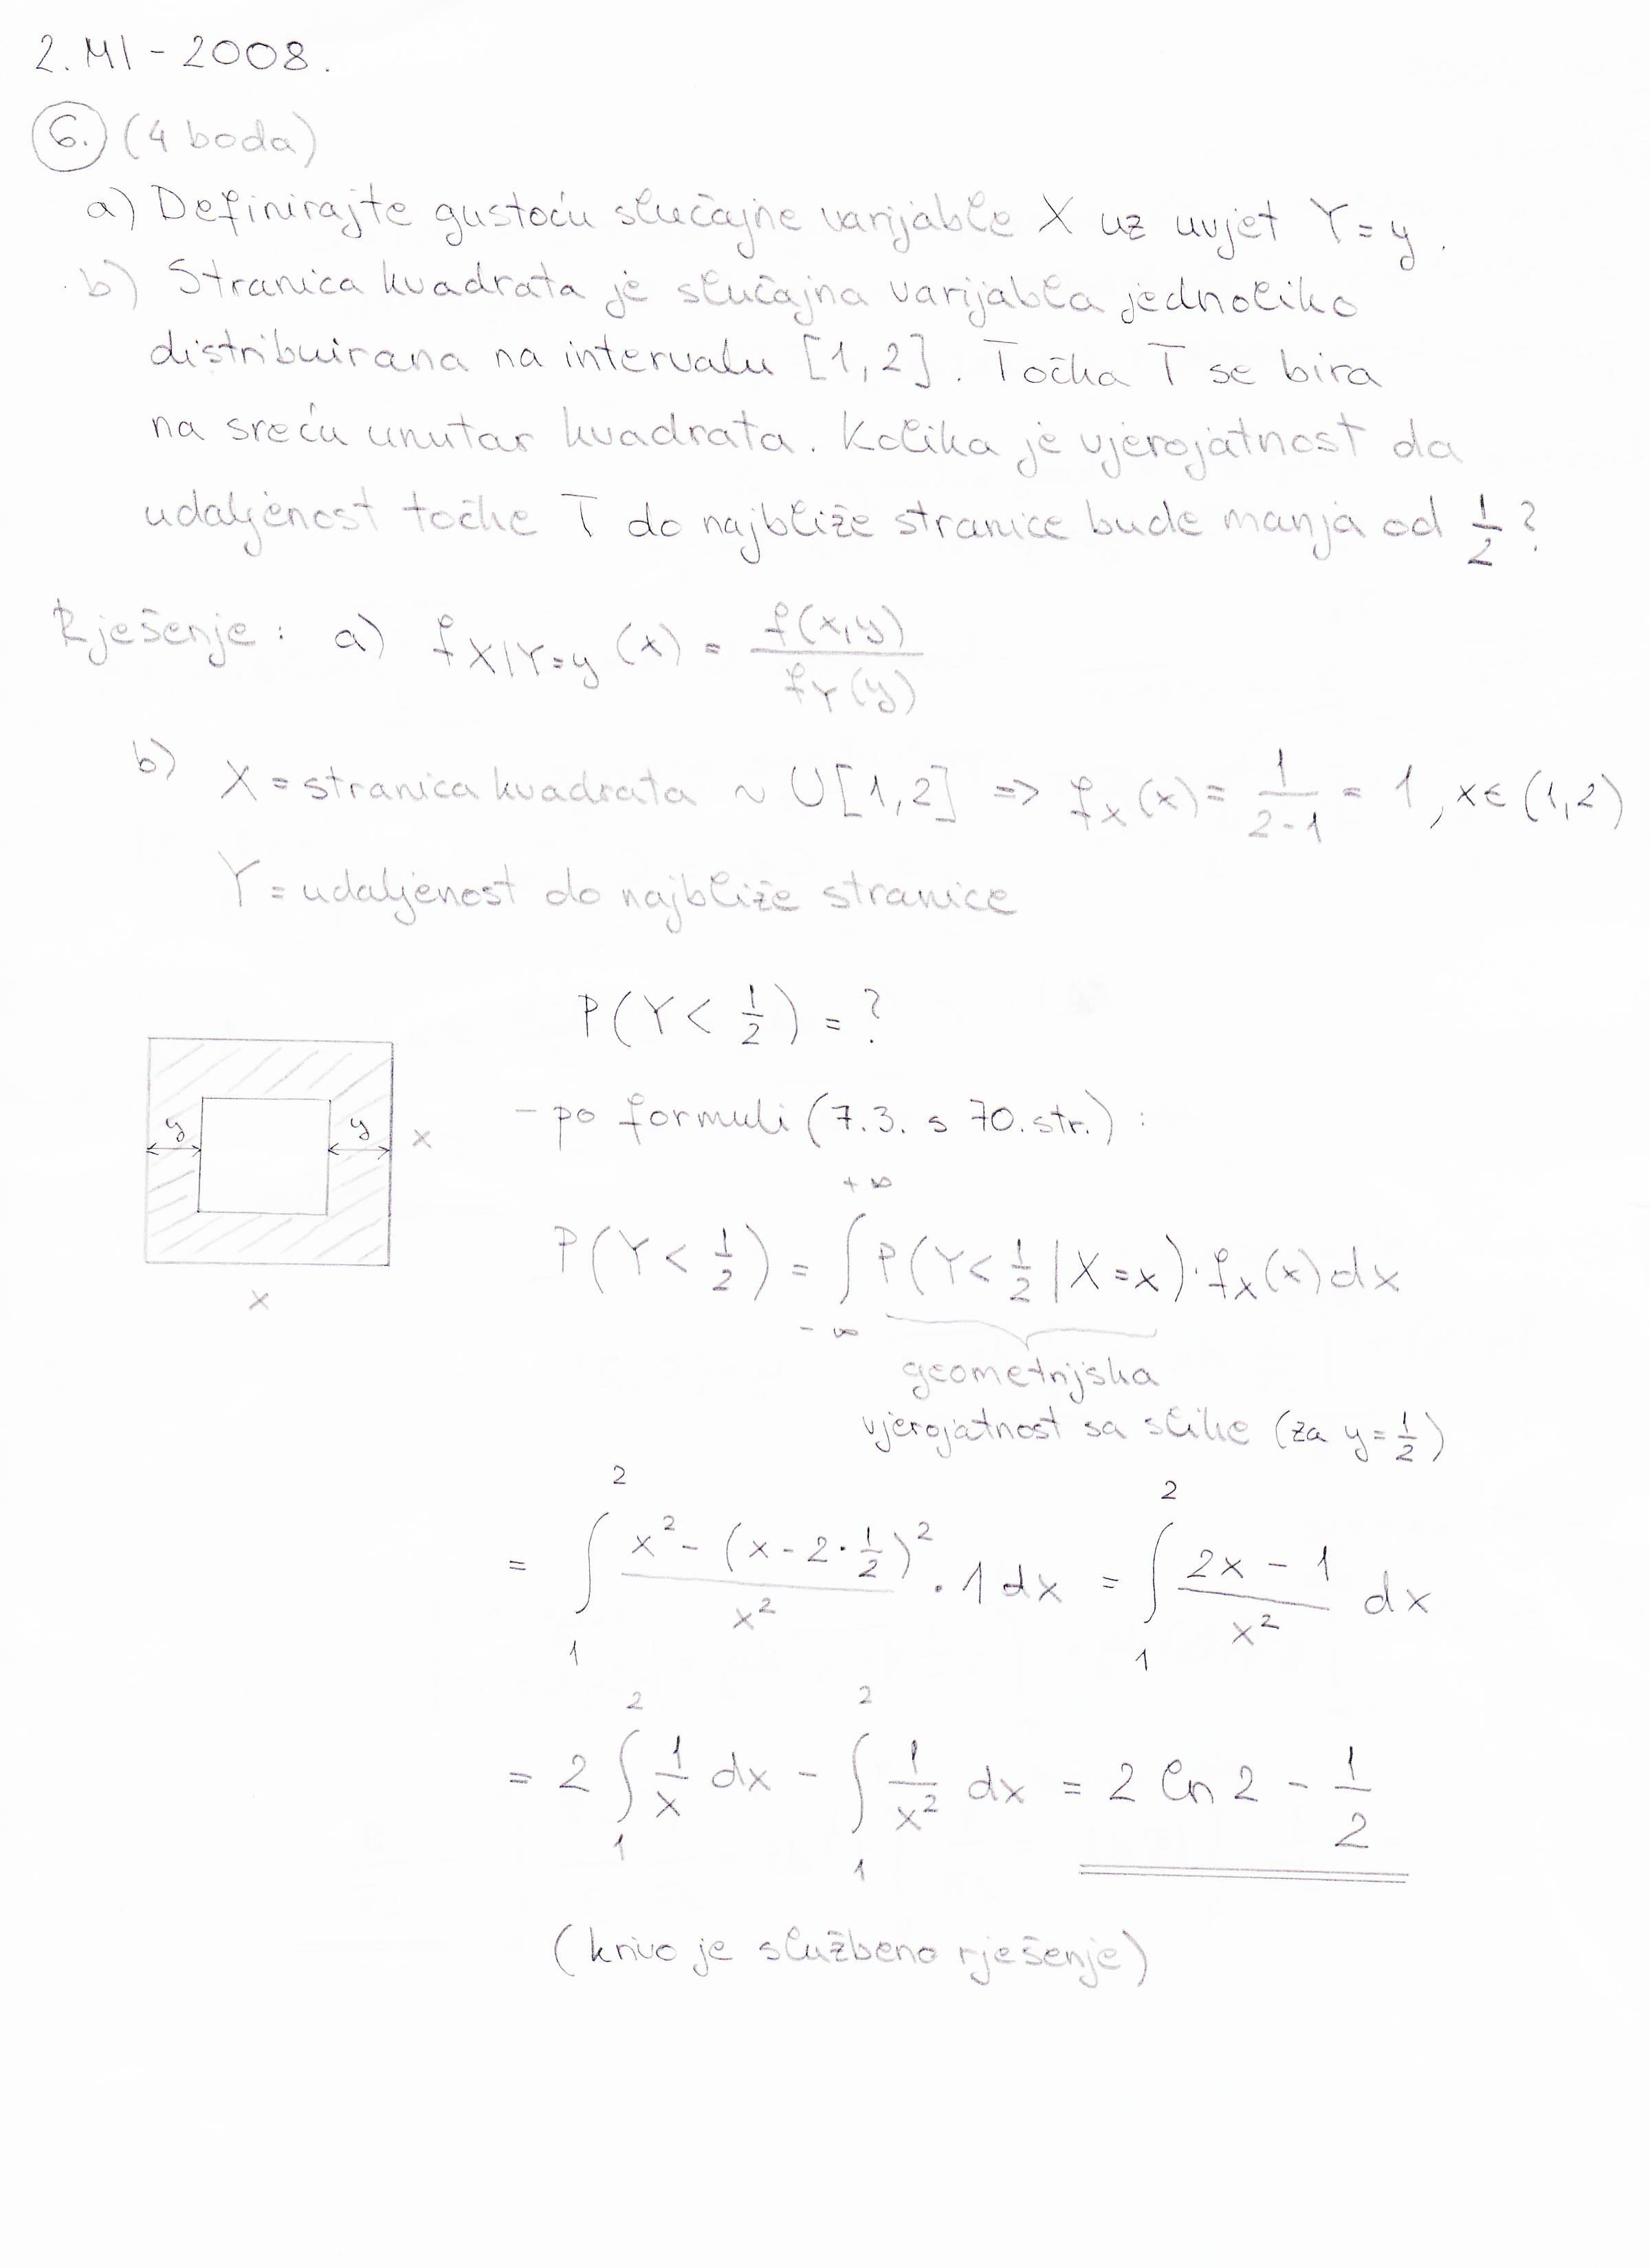 2. MI - 2008.
6. (4 boda)
a) Definirajte gustoću slučajne varijable X uz uvjet Y = y.
b) Stranica kvadrata je slučajna varijabla jednoliko
distribuirana na intervalu [1,2]. Točka T se bira
na sreću unutar kvadrata. Kolika je vjerojatnost da
udaljenost točke T do najbliže stranice bude manja od 1/2 ?
Rješenje: a) f_{X|Y=y} (x) = f(x,y) / f_Y(y)
b) X = stranica kvadrata ~ U[1,2] => f_X(x) = 1/(2-1) = 1, x∈(1,2)
Y = udaljenost do najbliže stranice
P(Y < 1/2) = ?
y y x
x
- po formuli (7.3. s 70. str.) :
P(Y < 1/2) = ∫_{-∞}^{+∞} P(Y < 1/2 | X = x) · f_X(x) dx
geometrijska
vjerojatnost sa slike (za y = 1/2)
= ∫_1^2 (x² - (x - 2·1/2)²)/x² · 1 dx = ∫_1^2 (2x - 1)/x² dx
= 2 ∫_1^2 1/x dx - ∫_1^2 1/x² dx = 2 ln 2 - 1/2
(krivo je službeno rješenje)